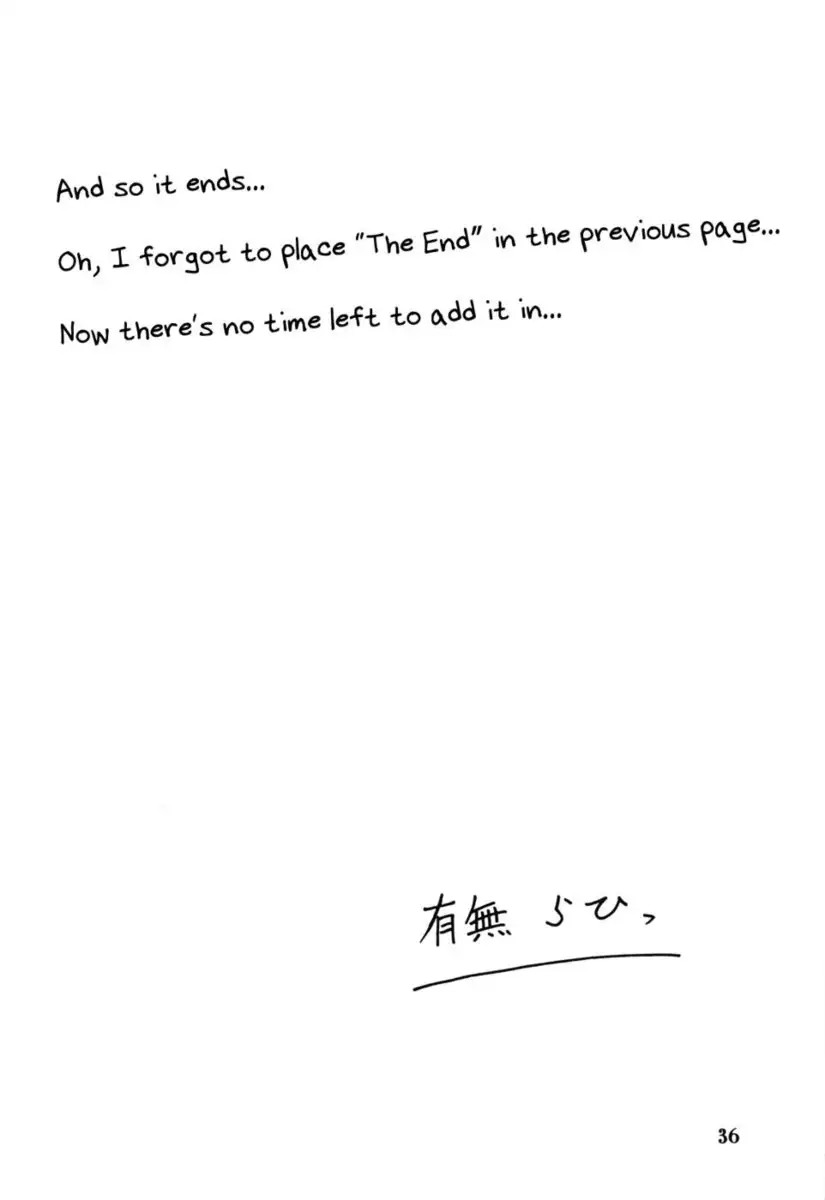 And so it ends...
Oh, I forgot to place "The End" in the previous page...
Now there's no time left to add it in...
有無 らひっ
36